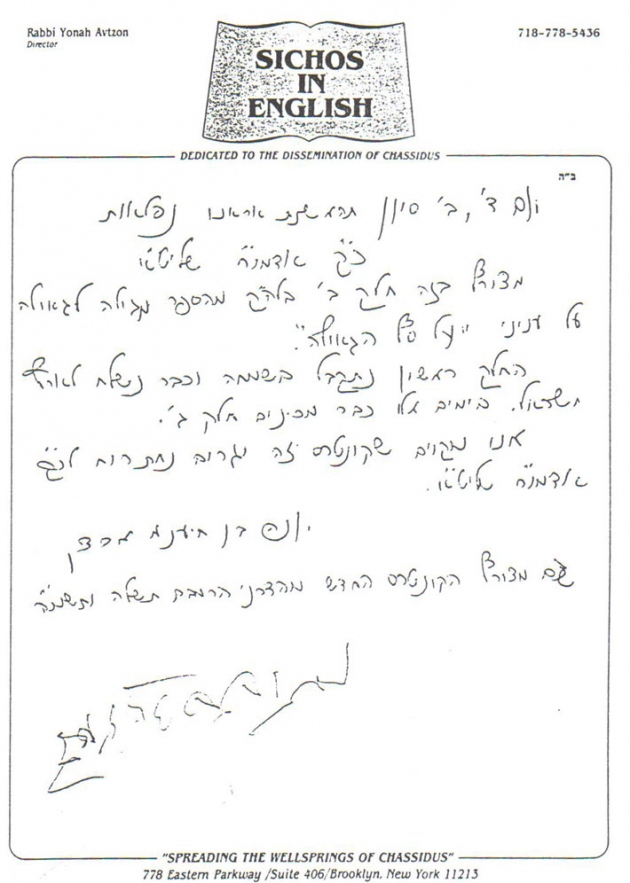 Rabbi Yonah Avtzon
Director
718-778-5436
SICHOS
IN
ENGLISH
DEDICATED TO THE DISSEMINATION OF CHASSIDUS
ב״ה
יום ד', ב' סיון תהא שנת אראנו נפלאות
כ"ק אדמו"ר שליט"א
מצורף בזה חלק ב' בלה"ק מהספר מגולה לגאולה
על עניני "על סף הגאולה".
החלק ראשון נתקבל בשמחה וכבר נשלח לארץ
ישראל. בימים אלו כבר מכינים חלק ג'.
אנו מקוים שקונטרס זה יגרום נחת רוח לכ"ק
אדמו"ר שליט"א.
יונה בן חיענא אבצן
גם מצורף הקונטרס החדש מהדרני הרמב"ם
"SPREADING THE WELLSPRINGS OF CHASSIDUS"
778 Eastern Parkway /Suite 406/Brooklyn, New York 11213